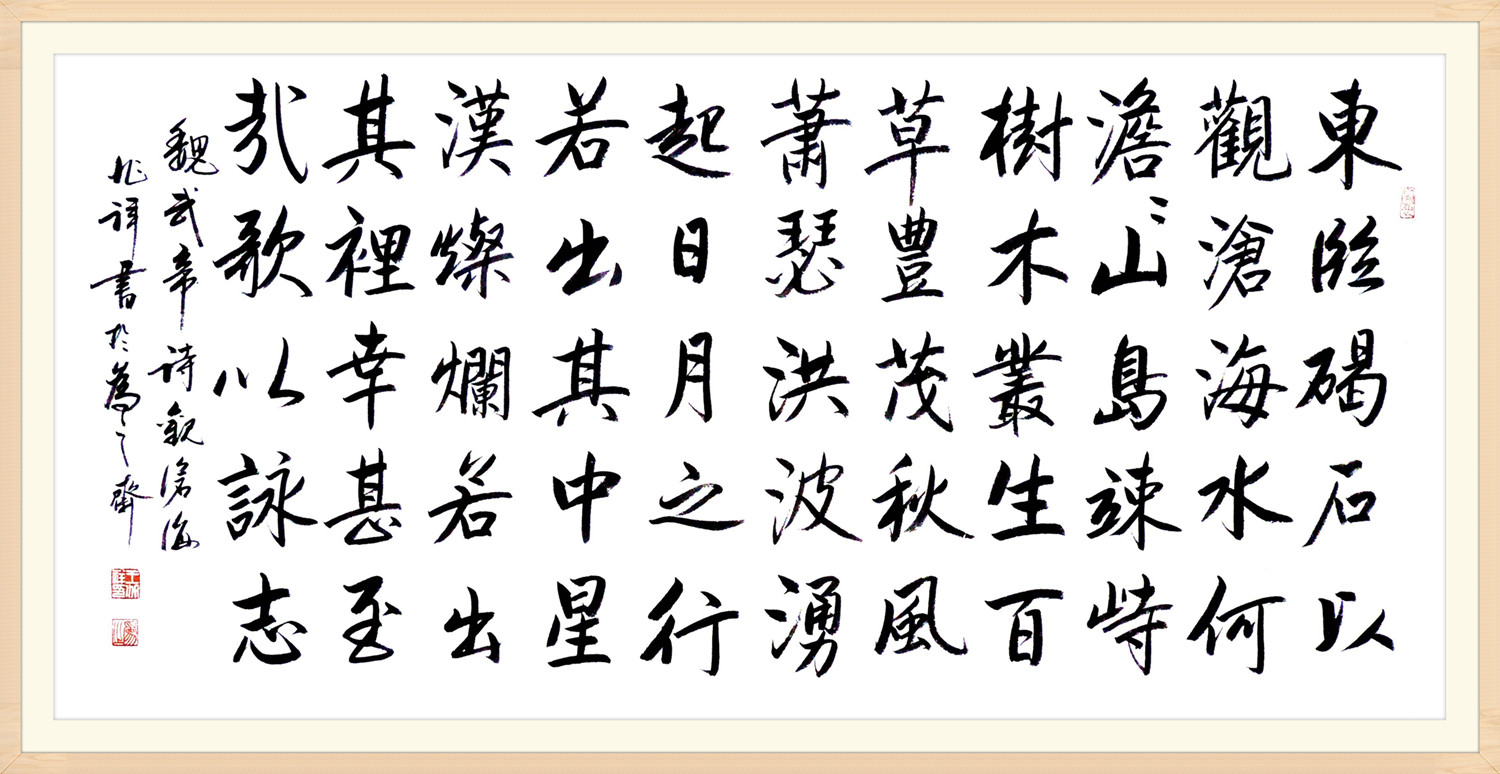 東臨碣石以
觀滄海水何
澹〻山島竦峙
樹木叢生百
草豐茂秋風
蕭瑟洪波湧
起日月之行
若出其中星
漢燦爛若出
其裡幸甚至
哉歌以詠志
魏武帝詩觀滄海
書於為之齋